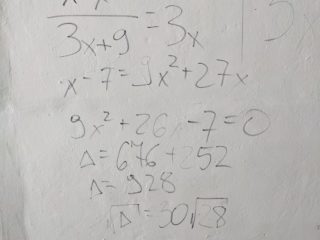 3x+9 = 3x
x-7=9x²+27x
9x²+26x-7=0
Δ=676+252
Δ=928
√Δ=30√28